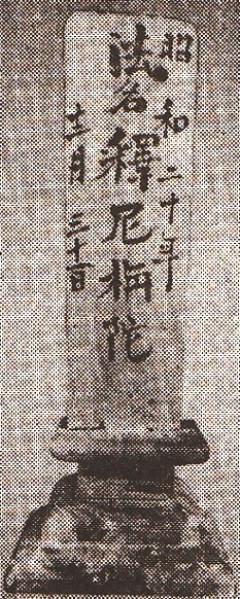 昭和二十年
法名釋尼栴陀
十二月三十一日